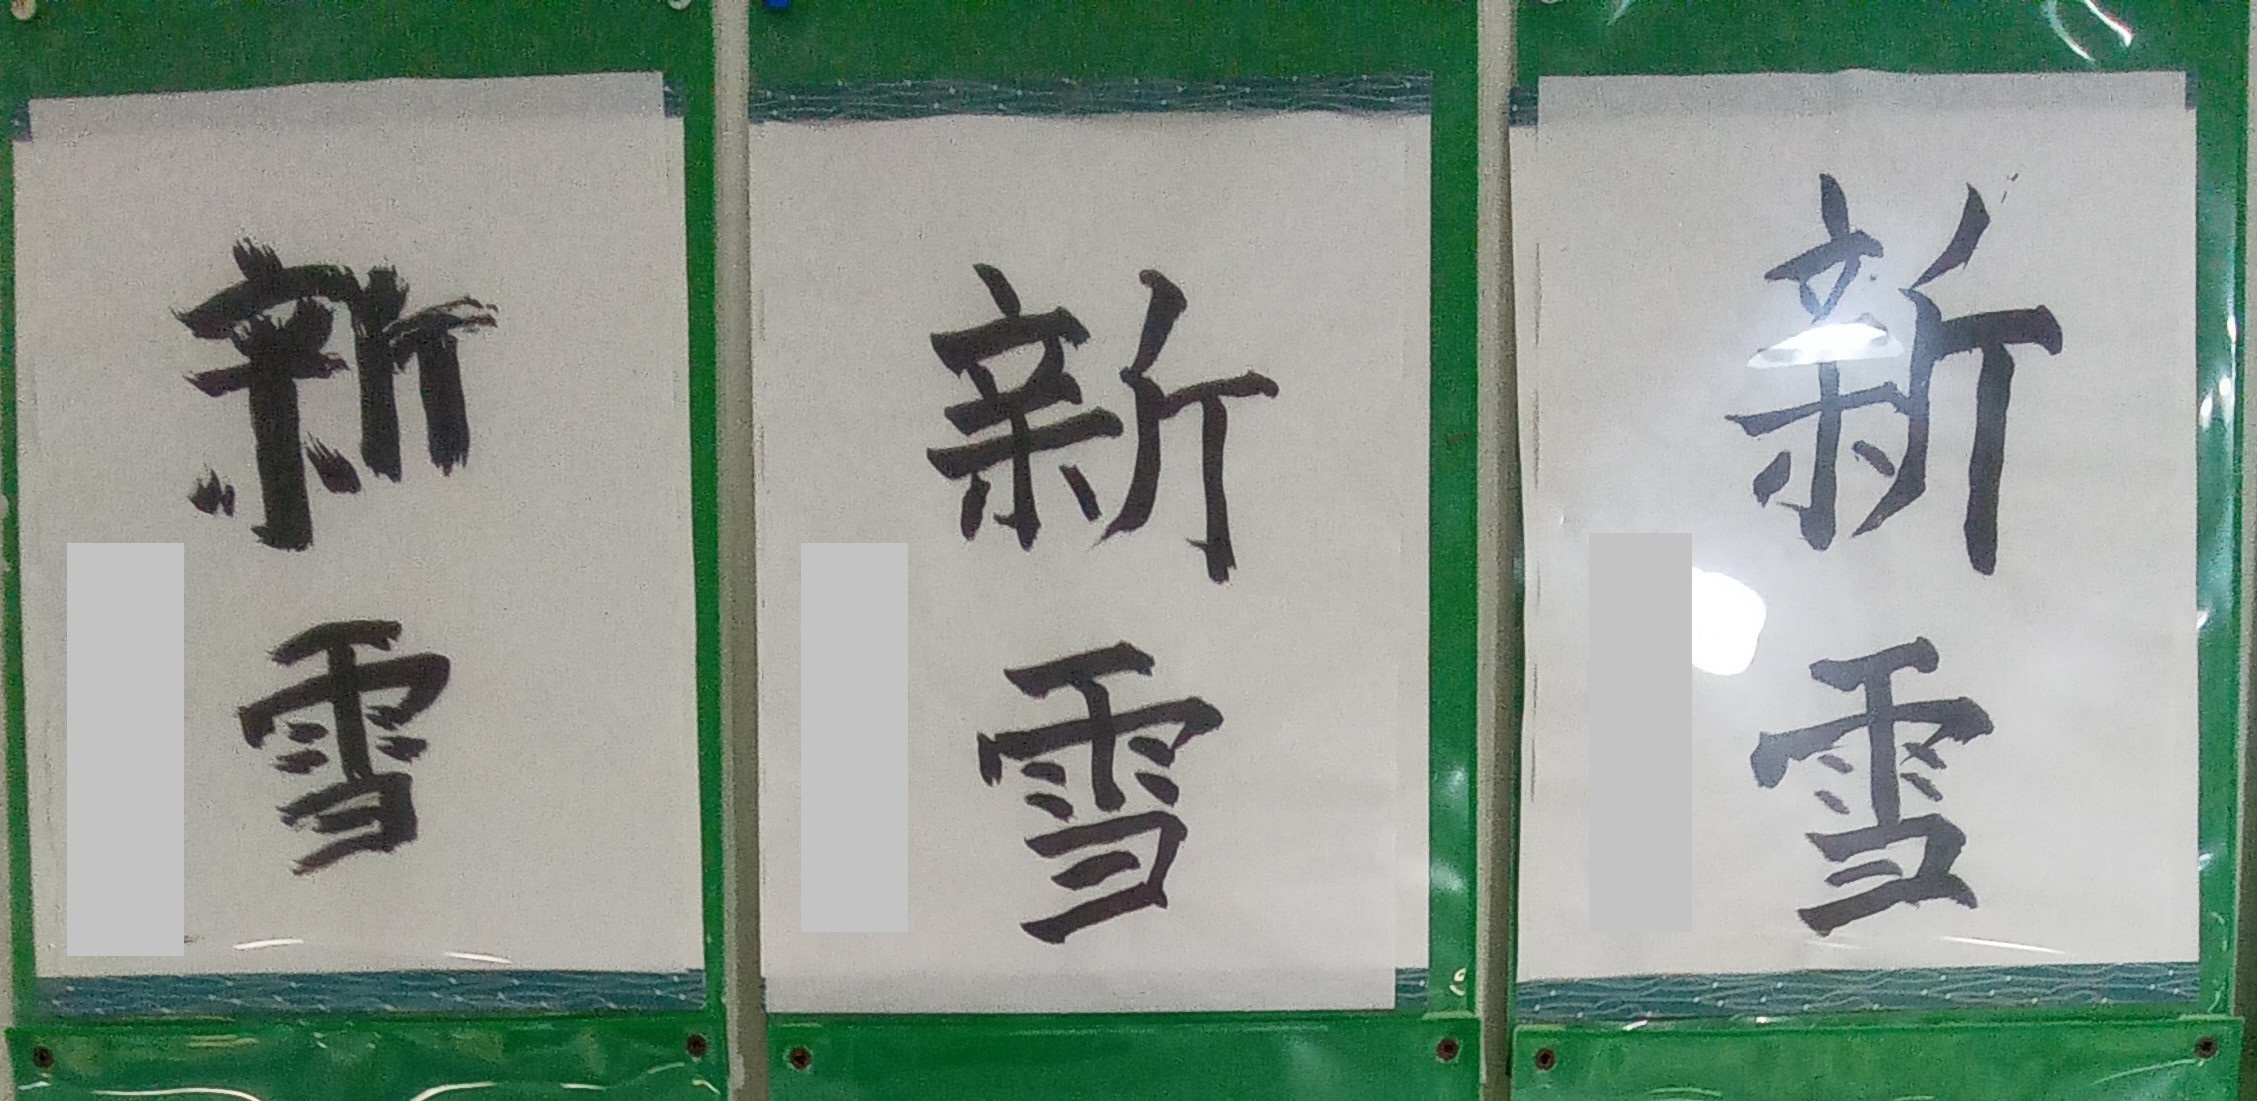 新雪
新雪
新雪